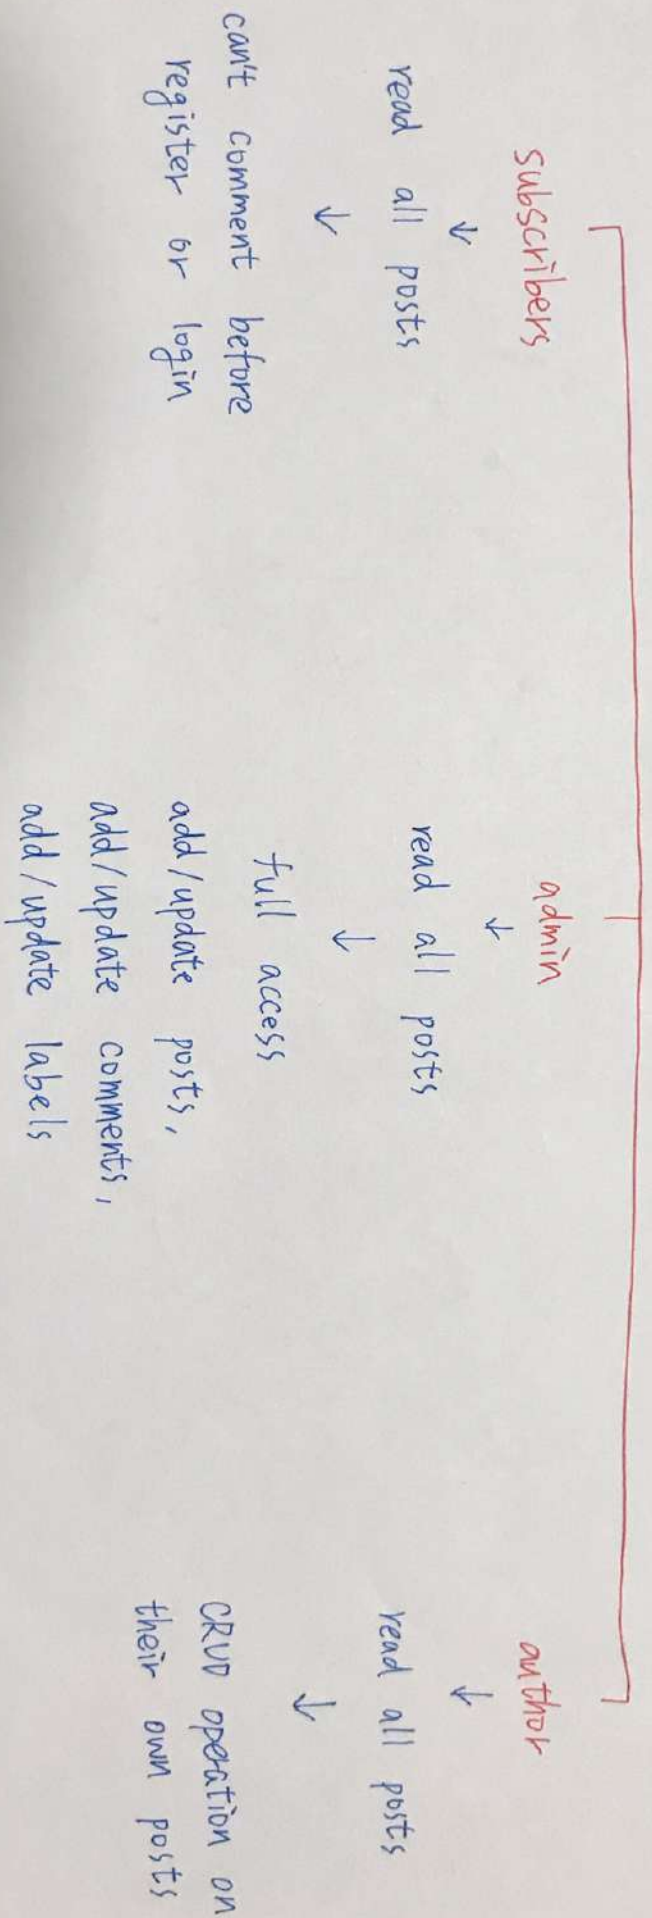 subscribers
read all posts
can't comment before
register or login
admin
read all posts
full access
add/update posts,
add/update comments,
add/update labels
author
read all posts
CRUD operation on
their own posts